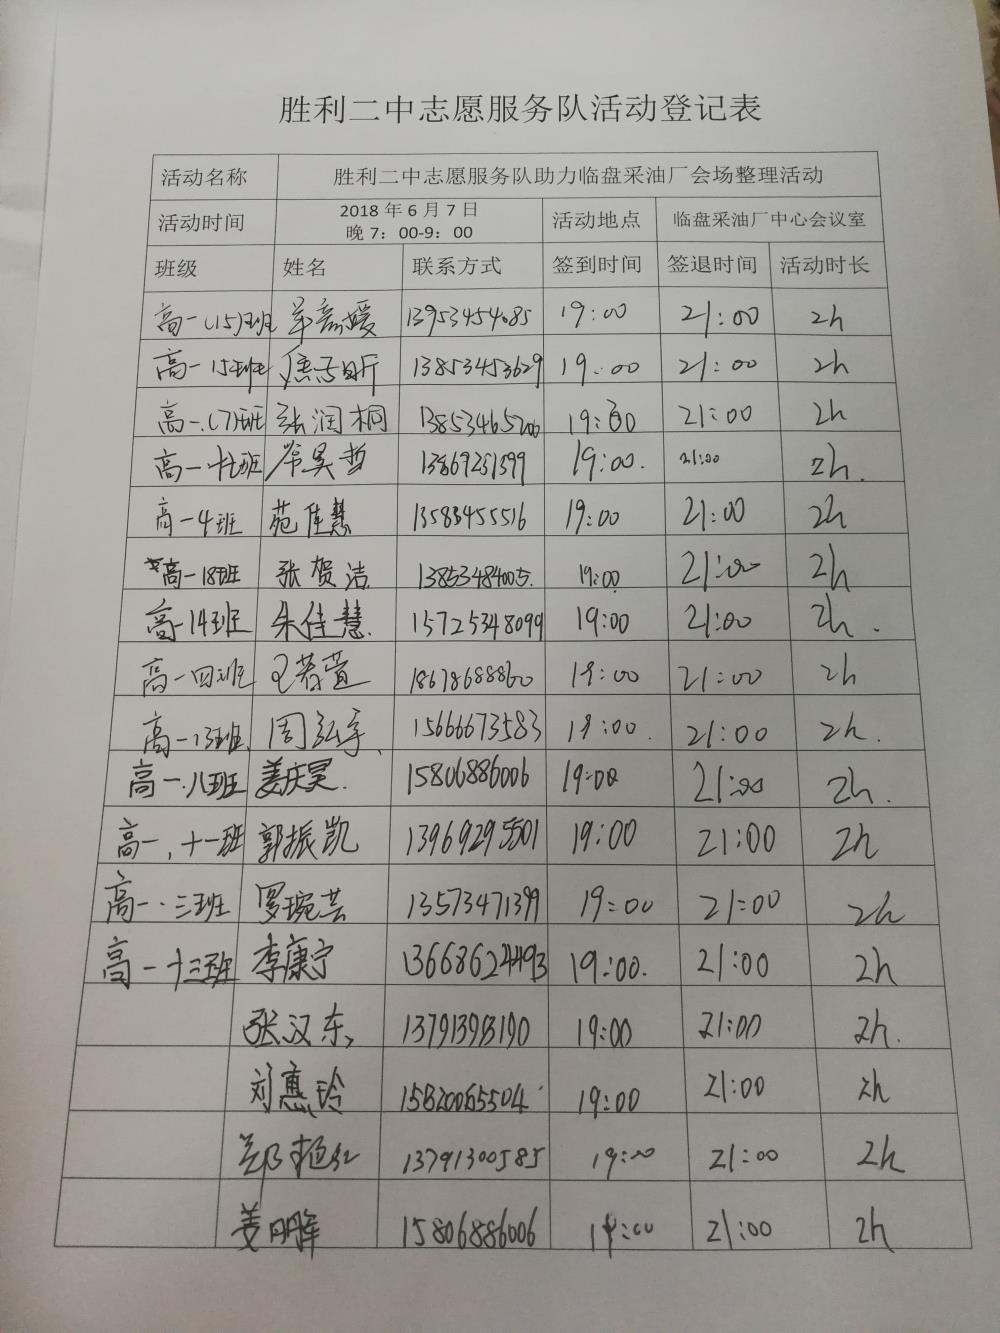 胜利二中志愿服务队活动登记表
活动名称 胜利二中志愿服务队助力临盘采油厂会场整理活动
活动时间 2018年6月7日 晚7：00-9：00 活动地点 临盘采油厂中心会议室
班级 姓名 联系方式 签到时间 签退时间 活动时长
高一（15）班 13953454085 19:00 21:00 2h
高一15班 13853453629 19:00 21:00 2h
高一.（7）班 张润桐 19:00 21:00 2h
高一十七班 昊哲 19:00. 21:00 2h.
高一4班 苑佳慧 13583455516 19:00 21:00 2h
高一18班 张贺洁 13853484005. 19:00 21:00 2h
高一14班 朱佳慧. 15725348099 19:00 21:00 2h.
高一四班 王春萱 18678688860 19:00 21:00 2h
高一13班 周弘宇、 15666673583 19:00. 21:00 2h.
高一.八班 姜庆昊. 15806886006 19:00 21:00 2h.
高一，十一班 郭振凯 13969295501 19:00 21:00 2h
高一.三班 罗琬芸 13573471399 19:00 21:00 2h
高一十三班 李康宁 13668624493 19:00. 21:00 2h
张汉东 19:00 21:00 2h.
刘惠玲 15820065504 19:00 21:00 2h
郑艳红 13791300585 19:00 21:00 2h
姜明晖 15806886006 19:00 21:00 2h